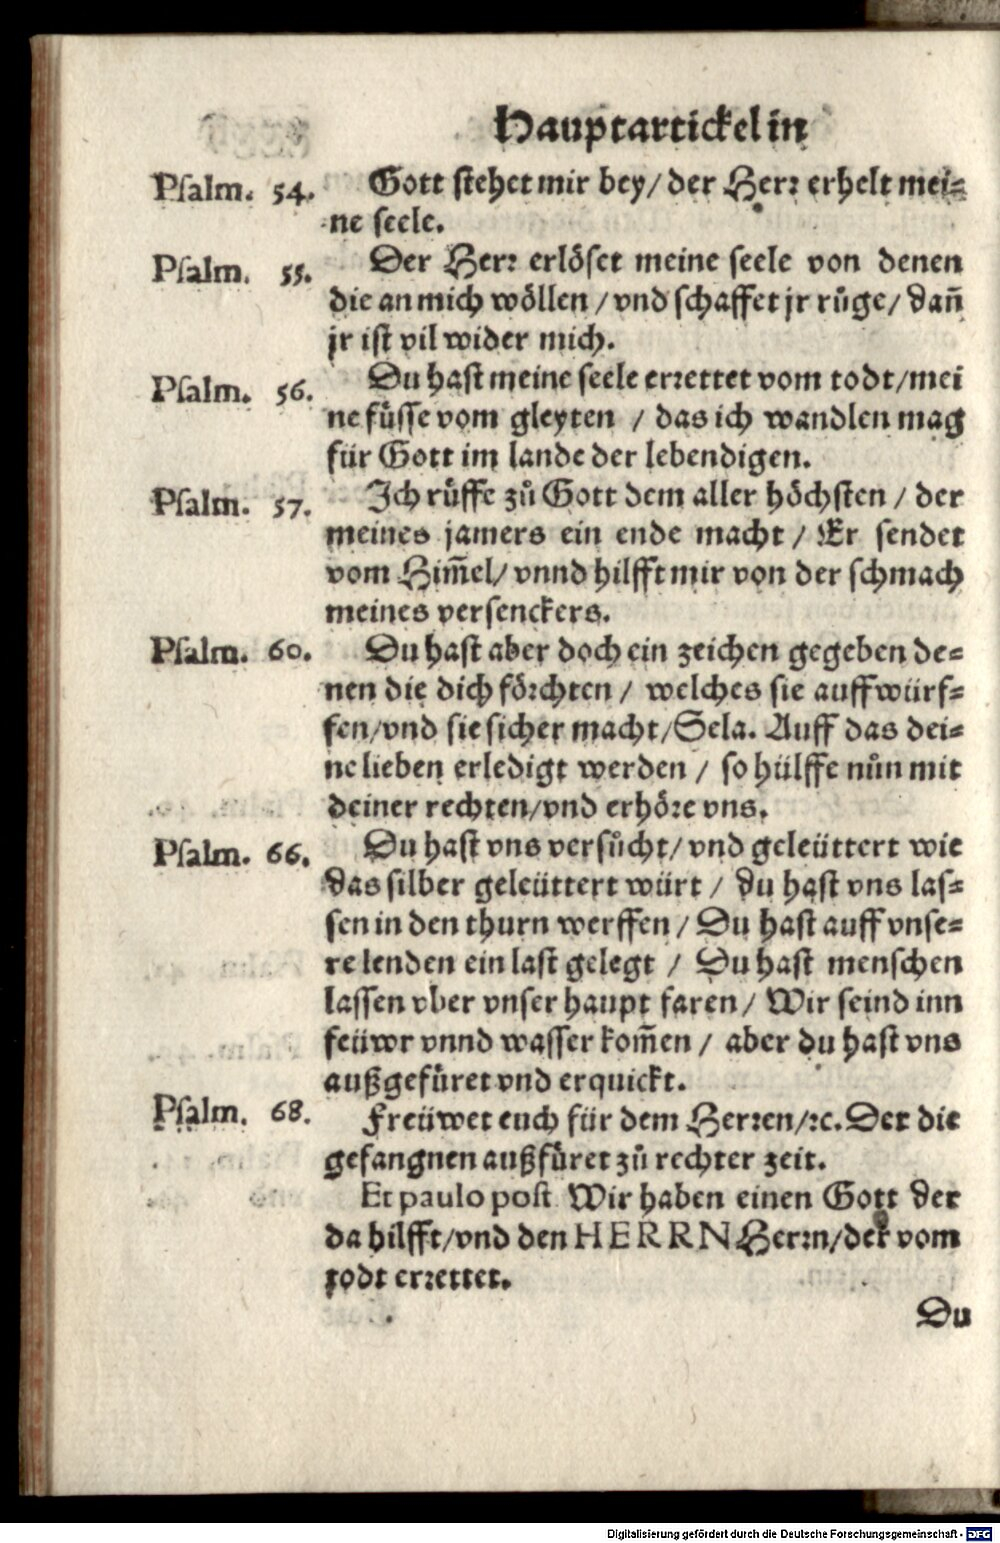 Hauptartickel in
Psalm. 54. Gott stehet mir bey/ der Herr erhelt mei=
ne seele.
Psalm. 55. Der Herr erlöset meine seele von denen
die an mich wöllen / vnd schaffet jr růge/ dañ
jr ist vil wider mich.
Psalm. 56. Du hast meine seele errettet vom todt/mei
ne füsse vom gleyten / das ich wandlen mag
für Gott im lande der lebendigen.
Psalm. 57. Ich rüffe zů Gott dem aller höchsten / der
meines jamers ein ende macht / Er sendet
vom Him̄el/ vnnd hilfft mir von der schmach
meines versenckers.
Psalm. 60. Du hast aber doch ein zeichen gegeben de=
nen die dich förchten / welches sie auffwürf=
fen/vnd sie sicher macht/Sela. Auff das dei=
ne lieben erledigt werden / so hülffe nůn mit
deiner rechten/vnd erhöre vns.
Psalm. 66. Du hast vns versůcht/ vnd geleüttert wie
das silber geleüttert würt / du hast vns las=
sen in den thurn werffen / Du hast auff vnse=
re lenden ein last gelegt / Du hast menschen
lassen vber vnser haupt faren/ Wir seind inn
feüwr vnnd wasser kom̄en / aber du hast vns
außgefüret vnd erquickt.
Psalm. 68. Freüwet euch für dem Herren/ꝛc. Der die
gefangnen außfüret zů rechter zeit.
Et paulo post Wir haben einen Gott der
da hilfft/vnd den HERRN Herrn/der vom
todt errettet.
Du
Digitalisierung gefördert durch die Deutsche Forschungsgemeinschaft - DFG